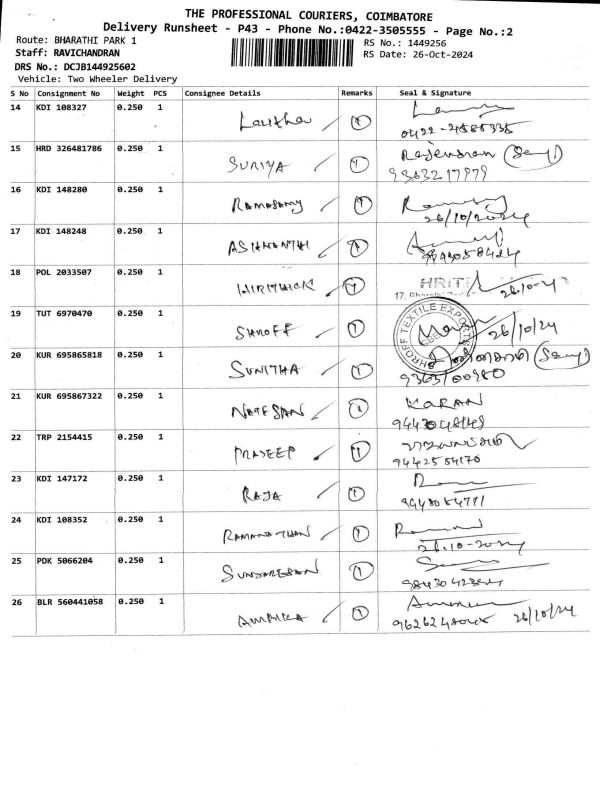 THE PROFESSIONAL COURIERS, COIMBATORE
Delivery Runsheet - P43 - Phone No.:0422-3505555 - Page No.:2
Route: BHARATHI PARK 1
RS No.: 1449256
Staff: RAVICHANDRAN
RS Date: 26-Oct-2024
DRS No.: DCJB144925602
Vehicle: Two Wheeler Delivery
S No Consignment No Weight PCS Consignee Details Remarks Seal & Signature
14 KDI 108327 0.250 1
15 HRD 326481786 0.250 1 SURIYA 1 Rajendran
9363217979
16 KDI 148280 0.250 1 RAMASAMY 1
26/10/2024
17 KDI 148248 0.250 1 ASHWANTHI 1
18 POL 2033507 0.250 1 HIRITHICK 1 HRIT
17, Bharathi
19 TUT 6970470 0.250 1 SHROFF 1 SHROFF TEXTILE EXPORTS 26/10/24
20 KUR 695865818 0.250 1 SUNITHA 1
21 KUR 695867322 0.250 1 NATESAN 1 KARAN
22 TRP 2154415 0.250 1 PRADEEP 1
9442584170
23 KDI 147172 0.250 1 RAJA 1
24 KDI 108352 0.250 1 RAMANATHAN 1
26.10-2024
25 PDK 5066204 0.250 1 SUNDARESAN 1
26 BLR 560441058 0.250 1 1
26/10/24